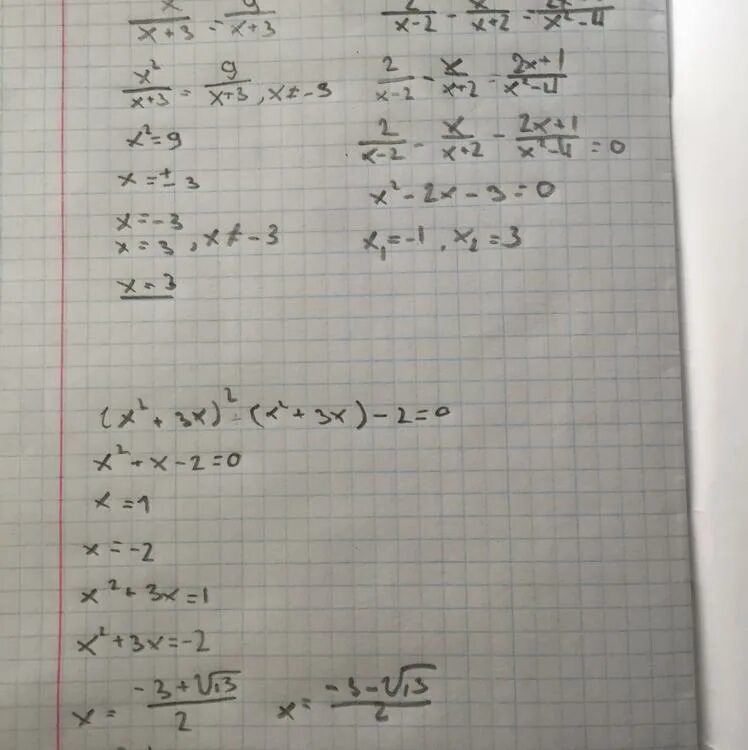 x/(x+3) = 9/(x+3)
x²/(x+3) = 9/(x+3), x ≠ -3
x² = 9
x = ± 3
x = -3
x = 3, x ≠ -3
x = 3
2/(x-2) - x/(x+2) = 2x+1/(x²-4)
2/(x-2) - x/(x+2) - (2x+1)/(x²-4)
2/(x-2) - x/(x+2) - (2x+1)/(x²-4) = 0
x² - 2x - 3 = 0
x₁ = -1, x₂ = 3
(x² + 3x)² - (x² + 3x) - 2 = 0
x² + x - 2 = 0
x = 1
x = -2
x² + 3x = 1
x² + 3x = -2
x = (-3+√13)/2 x = (-3-√13)/2